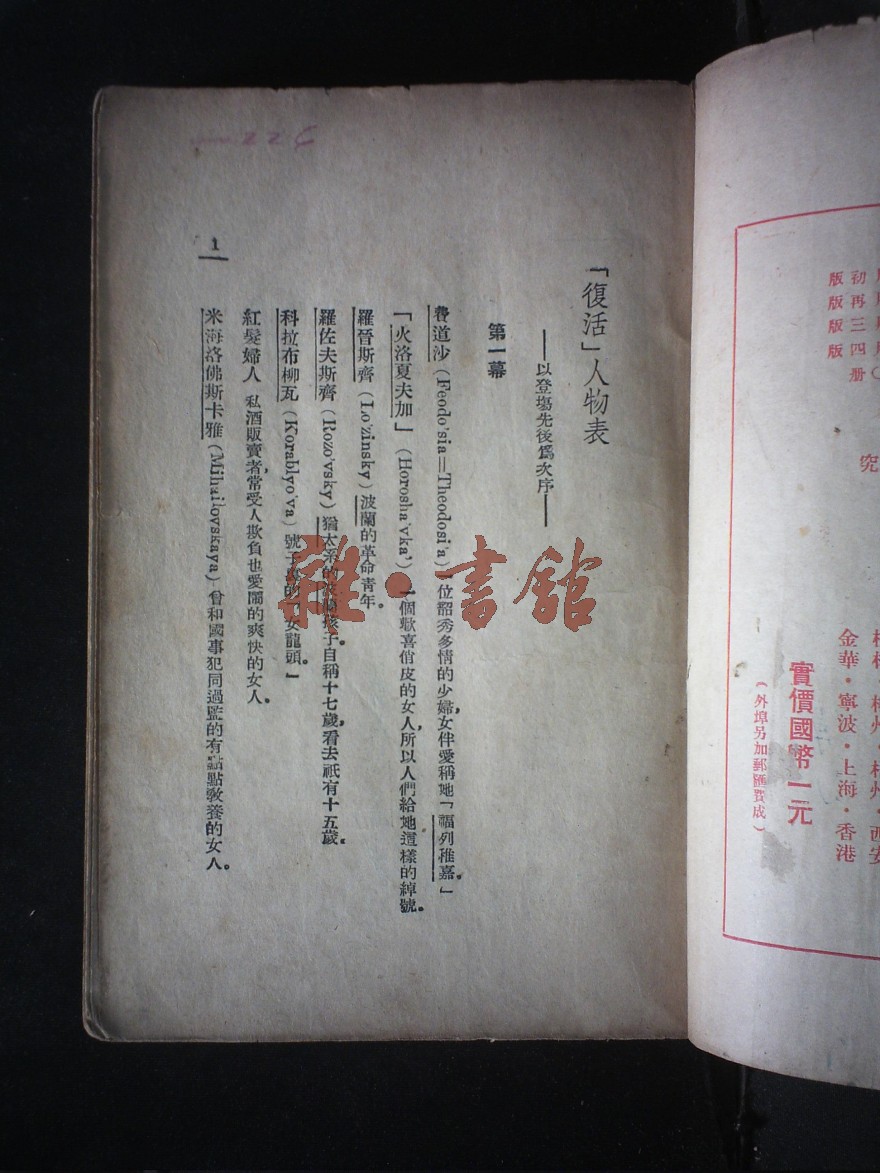 「復活」人物表
——以登塲先後爲次序——
第一幕
費道沙(Feodo'sia=Theodosi'a)一位韶秀多情的少婦,女伴愛稱她「福列稚嘉。」
「火洛夏夫加」(Horosha'vka')一個歡喜俏皮的女人,所以人們給她這樣的綽號。
羅晉斯齊(Lo'zinsky)波蘭的革命青年。
羅佐夫斯齊(Rozo'vsky)猶太系的波蘭孩子自稱十七歲,看去祇有十五歲。
科拉布柳瓦(Korablyo'va)號子裏的「女龍頭。」
紅髮婦人 私酒販賣者,常受人欺負也愛鬧的爽快的女人。
米海洛佛斯卡雅(Mihailovskaya)曾和國事犯同過監的有點點敎養的女人。
1
226
雜·書館
初版
再版
三版
四版
册
究
杭州·西安
金華·寧波·上海·香港
實價國幣一元
(外埠另加郵匯費成)